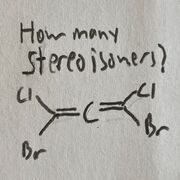 How many
Stereoisomers?
Cl Cl
C
Br Br